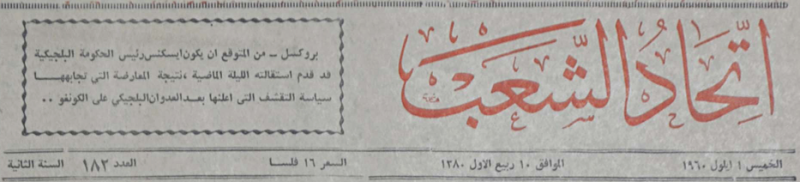 اتحاد الشعب
بروكسل – من المتوقع ان يكون ايسكنس رئيس الحكومة البلجيكية
قد قدم استقالته الليلة الماضية، نتيجة المعارضة التي تجابهها
سياسة التقشف التي اعلنها بعد العدوان البلجيكي على الكونغو ..
الخميس ١ ايلول ١٩٦٠ الموافق ١٠ ربيع الاول ١٣٨٠ السعر ١٦ فلسا العدد ١٨٣ السنة الثانية